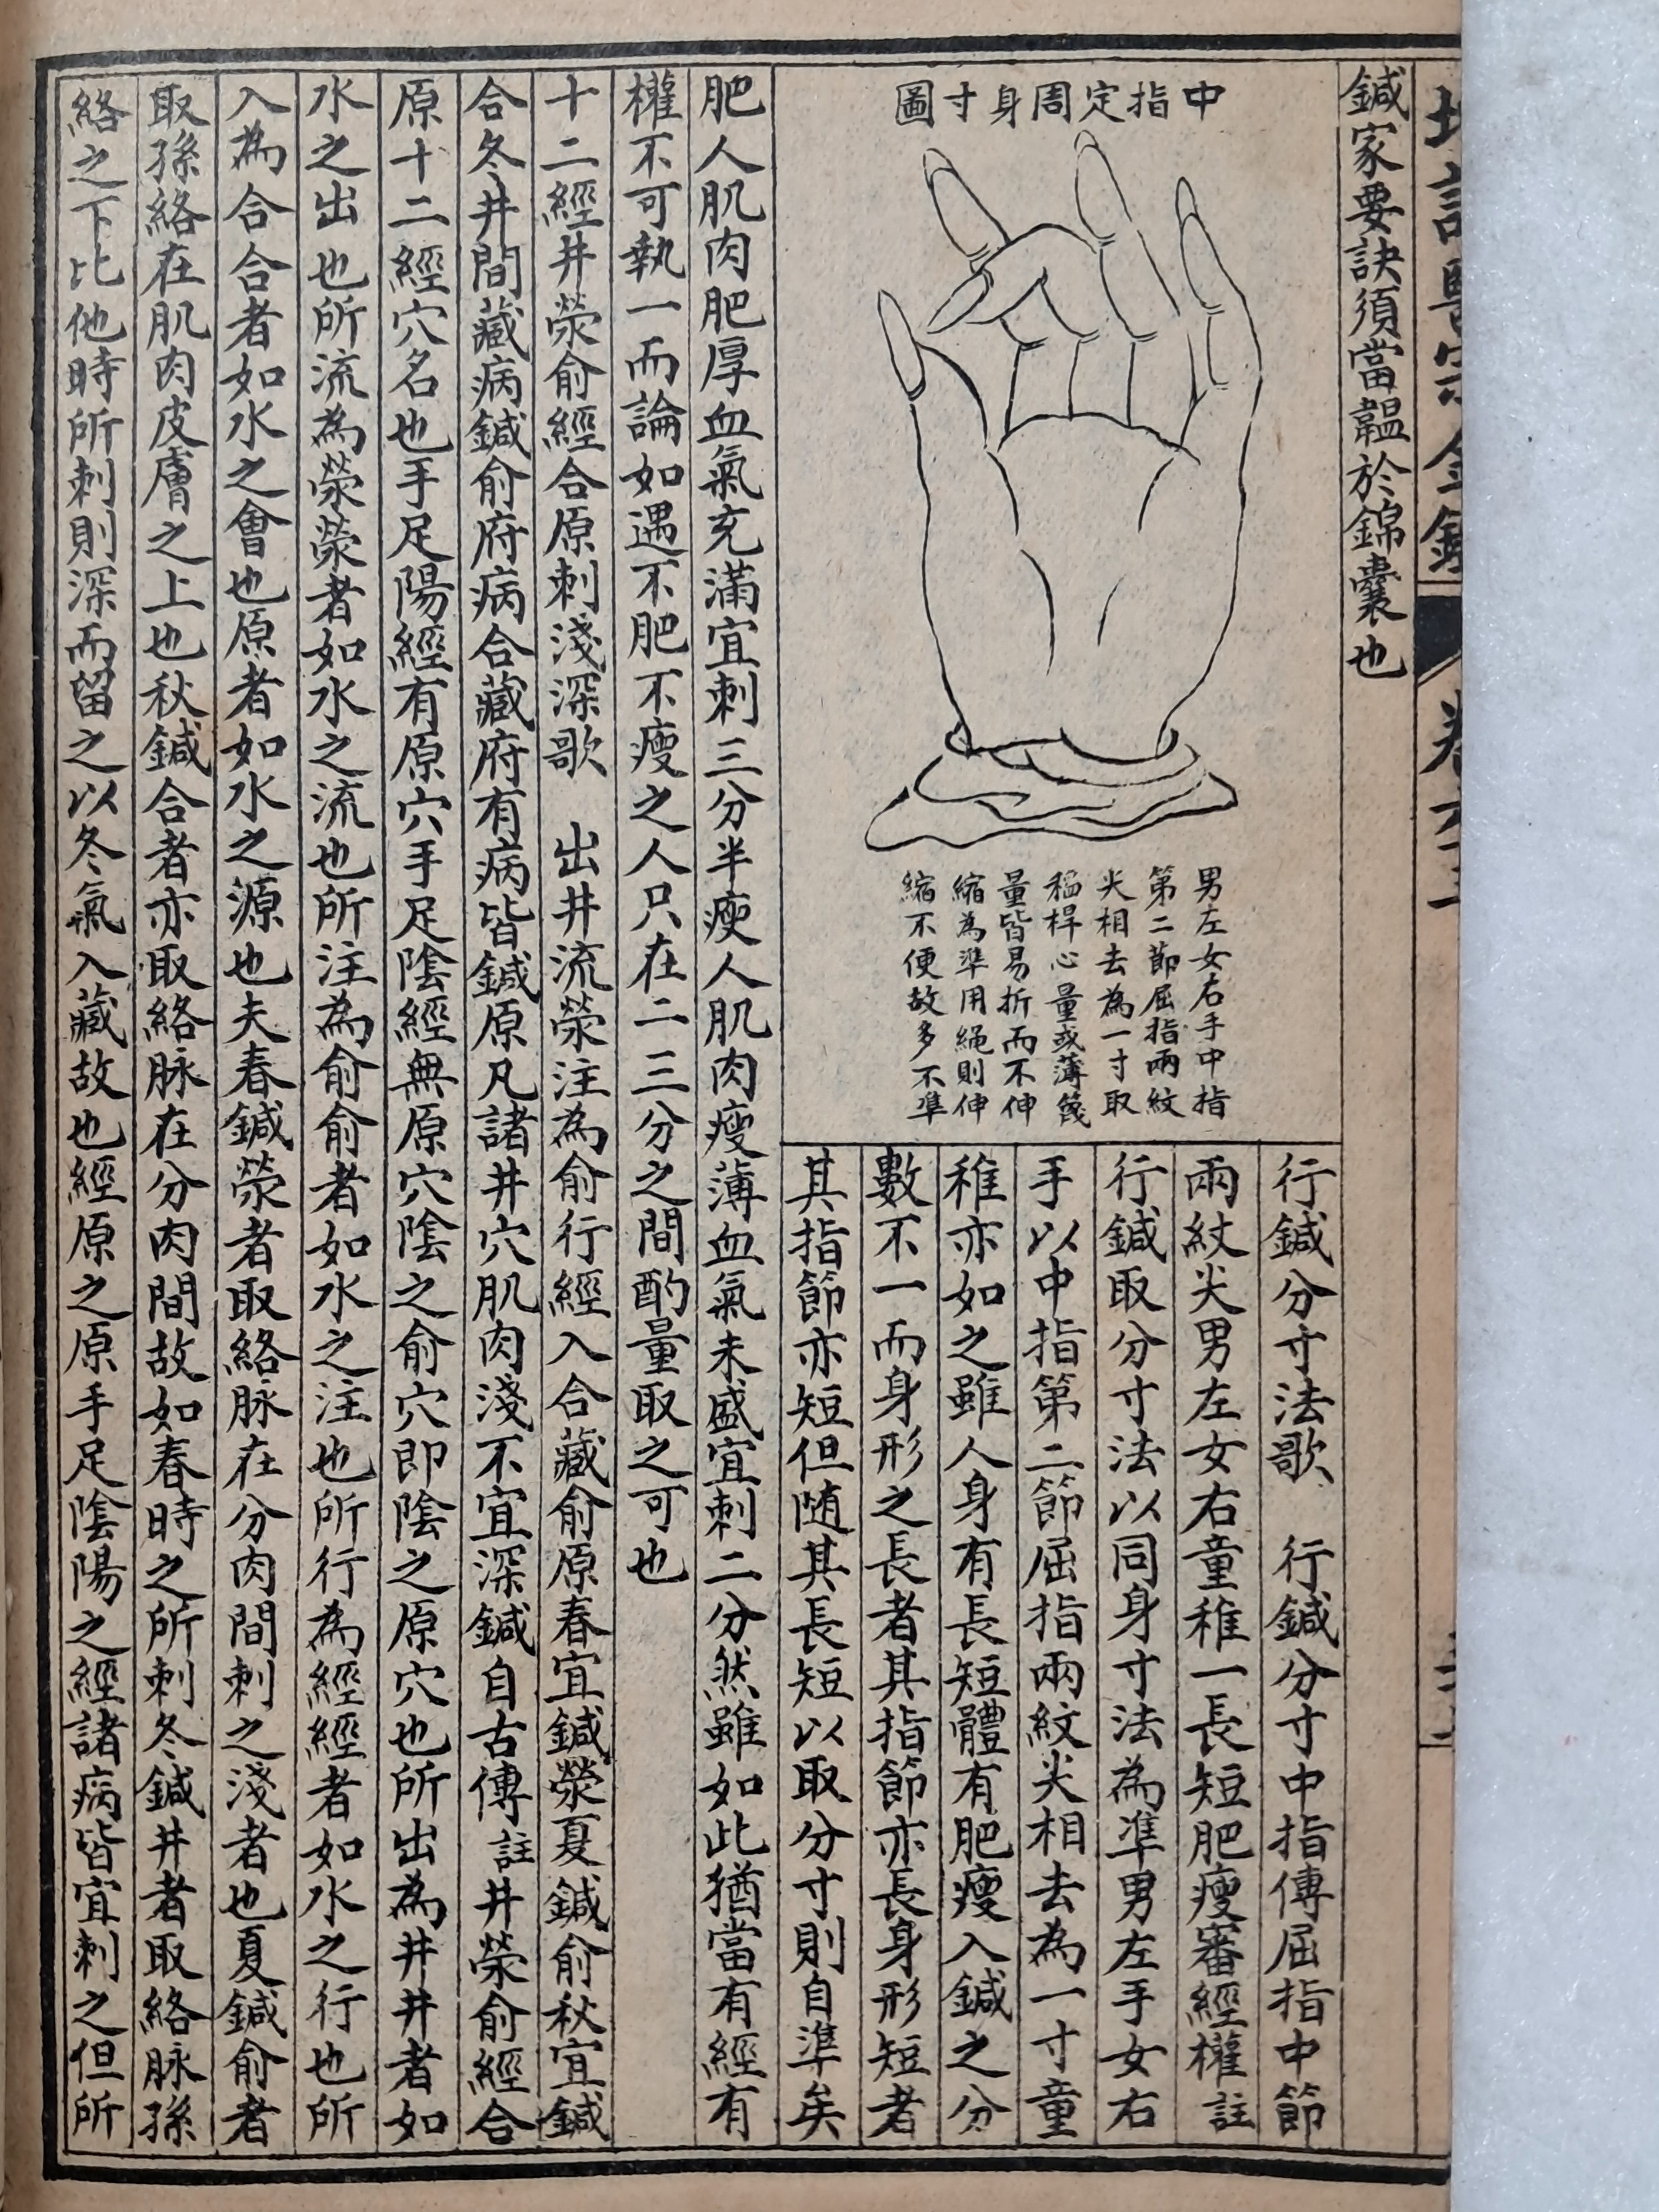 鍼家要訣須當韞於錦囊也
中指定周身寸圖
男左女右手中指
第二節屈指兩紋
尖相去為一寸取
稻桿心量或薄篾
量皆易折而不伸
縮為準用繩則伸
縮不便故多不準
行鍼分寸法歌　行鍼分寸中指傳屈指中節
兩紋尖男左女右童稚一長短肥瘦審經權註
行鍼取分寸法以同身寸法為準男左手女右
手以中指第二節屈指兩紋尖相去為一寸童
稚亦如之雖人身有長短體有肥瘦入鍼之分
數不一而身形之長者其指節亦長身形短者
其指節亦短但随其長短以取分寸則自準矣
肥人肌肉肥厚血氣充滿宜刺三分半瘦人肌肉瘦薄血氣未盛宜刺二分然雖如此猶當有經有
權不可執一而論如遇不肥不瘦之人只在二三分之間酌量取之可也
十二經井滎俞經合原刺淺深歌　出井流滎注為俞行經入合藏俞原春宜鍼滎夏鍼俞秋宜鍼
合冬井間藏病鍼俞府病合藏府有病皆鍼原凡諸井穴肌肉淺不宜深鍼自古傳註井滎俞經合
原十二經穴名也手足陽經有原穴手足陰經無原穴陰之俞穴即陰之原穴也所出為井井者如
水之出也所流為滎滎者如水之流也所注為俞俞者如水之注也所行為經經者如水之行也所
入為合合者如水之會也原者如水之源也夫春鍼滎者取絡脉在分肉間刺之淺者也夏鍼俞者
取孫絡在肌肉皮膚之上也秋鍼合者亦取絡脉在分肉間故如春時之所刺冬鍼井者取絡脉孫
絡之下比他時所刺則深而留之以冬氣入藏故也經原之原手足陰陽之經諸病皆宜刺之但所